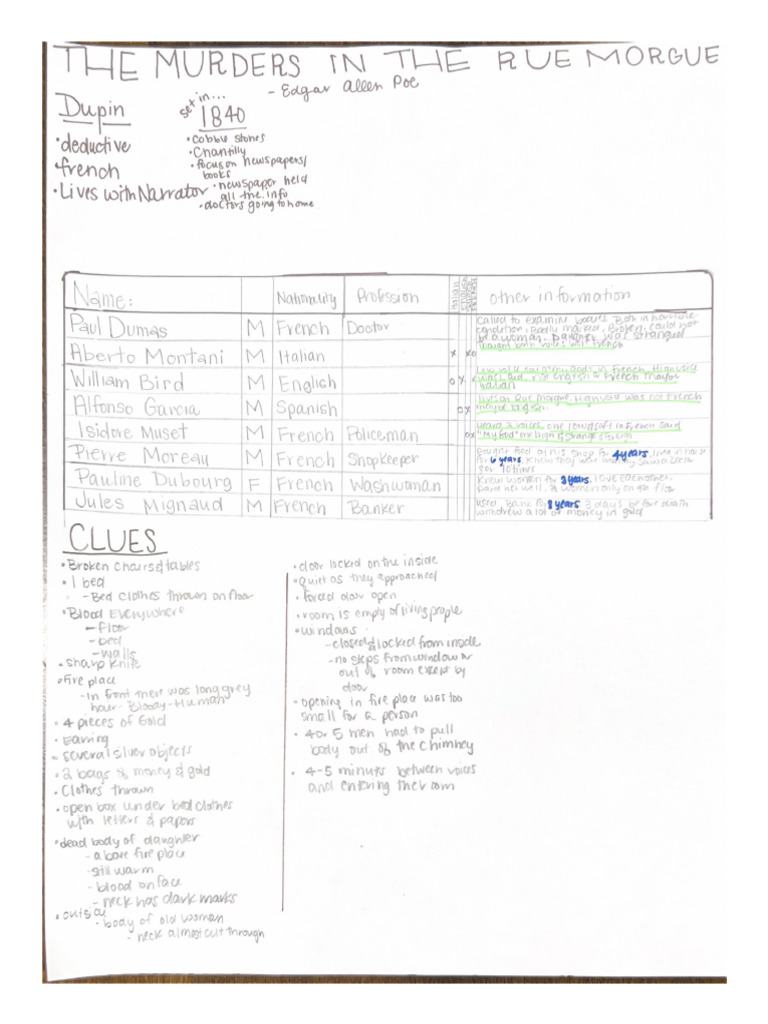 THE MURDERS IN THE RUE MORGUE
- Edgar Allen Poe
Dupin
• deductive
• french
• Lives with Narrator
set in...
1840
• cobble stones
• Chantilly
• focus on newspapers/
books
• newspaper held
all the info
• doctors going to home
Name: Nationality Profession Italian other information
Paul Dumas M French Doctor
called to examine bodies. Both in horrible
condition, badly marked, Broken, could not
be a woman. Daughter was strangled
Aberto Montani M Italian x xo
thought both voices French
William Bird M English ox x
in French. High voice
was loud, not english or French maybe
italian
Alfonso Garcia M Spanish ox
lives on Rue Morgue. High voice was not French
maybe English
Isidore Muset M French Policeman ox
heard 2 voices, one low & soft in French said
"My God" one high & strange
Pierre Moreau M French Shopkeeper
food at his shop for 4 years, live in house
for 6 years. Knew they were
8 or 10 times
Pauline Dubourg F French Washwoman
Knew women for 3 years, love each other,
paid her well. women only on 4th floor
Jules Mignaud M French Banker
used Bank for 8 years 3 days before death
withdrew a lot of money in gold
CLUES
• Broken chairs & tables
• 1 bed
- Bed clothes thrown on floor
• Blood Everywhere
- floor
- bed
- walls
• sharp knife
• fire place
- in front there was long grey
hair - Bloody - Human
• 4 pieces of Gold
• Earring
• several silver objects
• 2 bags of money & gold
• Clothes thrown
• open box under bed clothes
with letters & papers
• dead body of daughter
- above fire place
- still warm
- blood on face
- neck has dark marks
• outside
- body of old woman
- neck almost cut through
• door locked on the inside
• quiet as they approached
• forced door open
• room is empty of living people
• windows
- closed & locked from inside
- no steps from window or
out of room except by
door
• opening in fire place was too
small for a person
• 4 or 5 men had to pull
body out of the chimney
• 4-5 minutes between voices
and entering the room